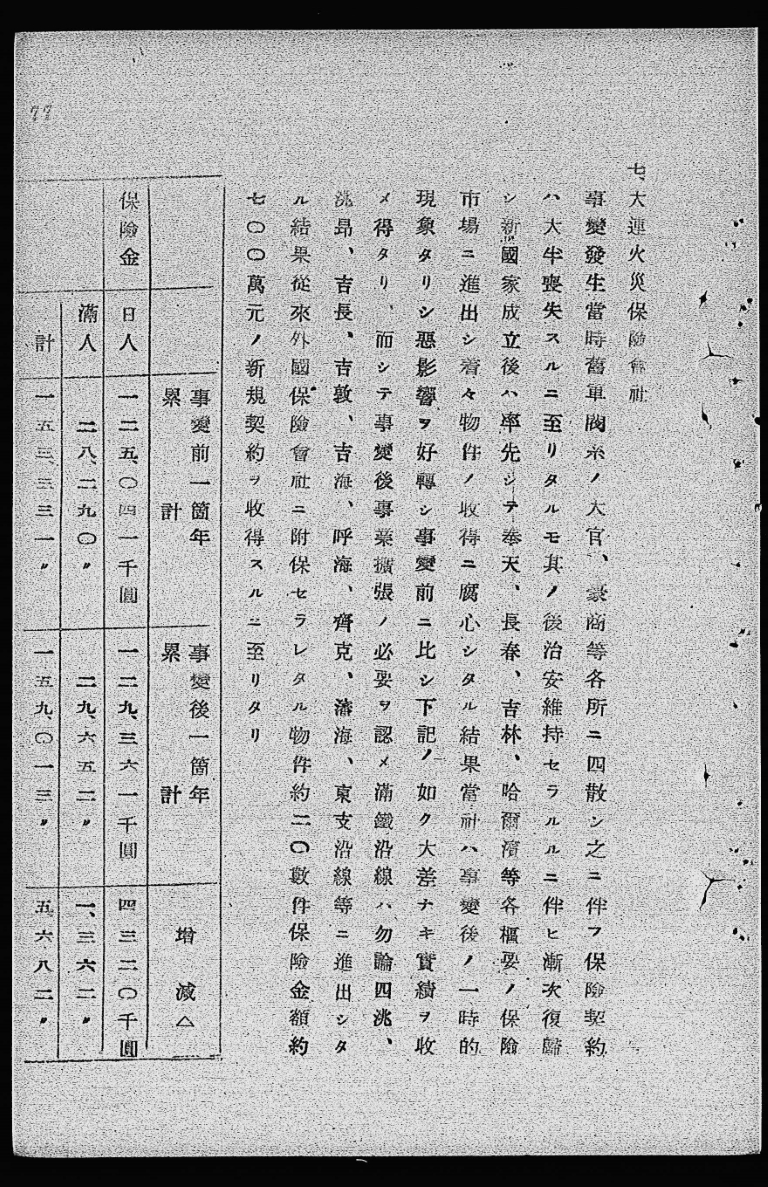 77
七、大連火災保險會社
事變發生當時舊軍閥系ノ大官、豪商等各所ニ四散シ之ニ伴フ保險契約
ハ大半喪失スルニ至リタルモ其ノ後治安維持セラルルニ伴ヒ漸次復歸
シ新國家成立後ハ率先シテ奉天、長春、吉林、哈爾濱等各樞要ノ保險
市場ニ進出シ着々物件ノ收得ニ腐心シタル結果當社ハ事變後ノ一時的
現象タリシ惡影響ヲ好轉シ事變前ニ比シ下記ノ如ク大差ナキ實績ヲ收
メ得タリ、而シテ事變後事業擴張ノ必要ヲ認メ滿鐵沿線ハ勿論四洮、
洮昂、吉長、吉敦、吉海、呼海、齊克、瀋海、東支沿線等ニ進出シタ
ル結果從來外國保險會社ニ附保セラレタル物件約二〇數件保險金額約
七〇〇萬元ノ新規契約ヲ收得スルニ至リタリ
事變前一箇年累計
事變後一箇年累計
增減△
保險金 日人 一二五、〇四一千圓 一二九、三六一千圓 四三二〇千圓
滿人 二八、二九〇〃 二九、六五二〃 一、三六二〃
計 一五三、三三一〃 一五九、〇一三〃 五六八二〃